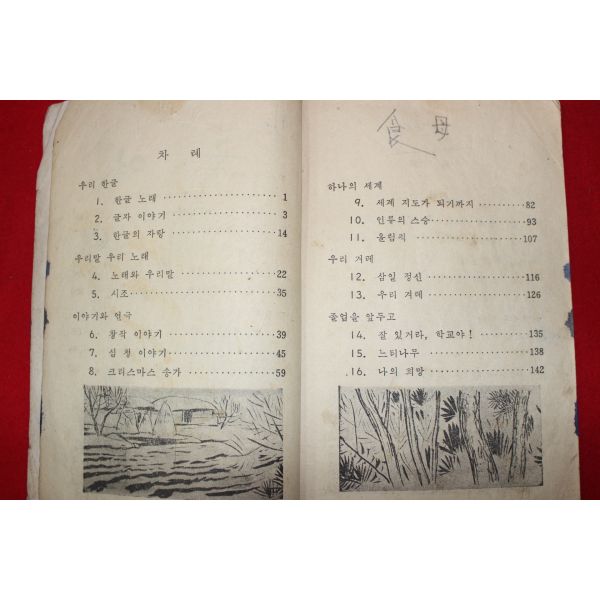 차 례
우리 한글
1. 한글 노래 ·················· 1
2. 글자 이야기 ·················· 3
3. 한글의 자랑 ·················· 14
우리말 우리 노래
4. 노래와 우리말 ·················· 22
5. 시조 ·················· 35
이야기와 연극
6. 창작 이야기 ·················· 39
7. 심 청 이야기 ·················· 45
8. 크리스마스 송가 ·················· 59
食 母
하나의 세계
9. 세계 지도가 되기까지 ·········· 82
10. 인류의 스승 ·················· 93
11. 올림픽 ·················· 107
우리 겨레
12. 삼일 정신 ·················· 116
13. 우리 겨레 ·················· 126
졸업을 앞두고
14. 잘 있거라, 학교야! ·········· 135
15. 느티나무 ·················· 138
16. 나의 희망 ·················· 142